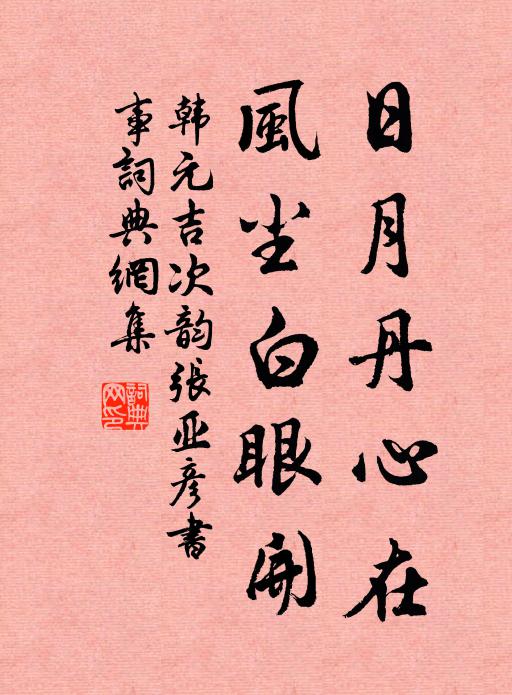 日月丹心在
風尘白眼開
韩元吉次韵張亚彦書
事詞典網集
詞典
网印